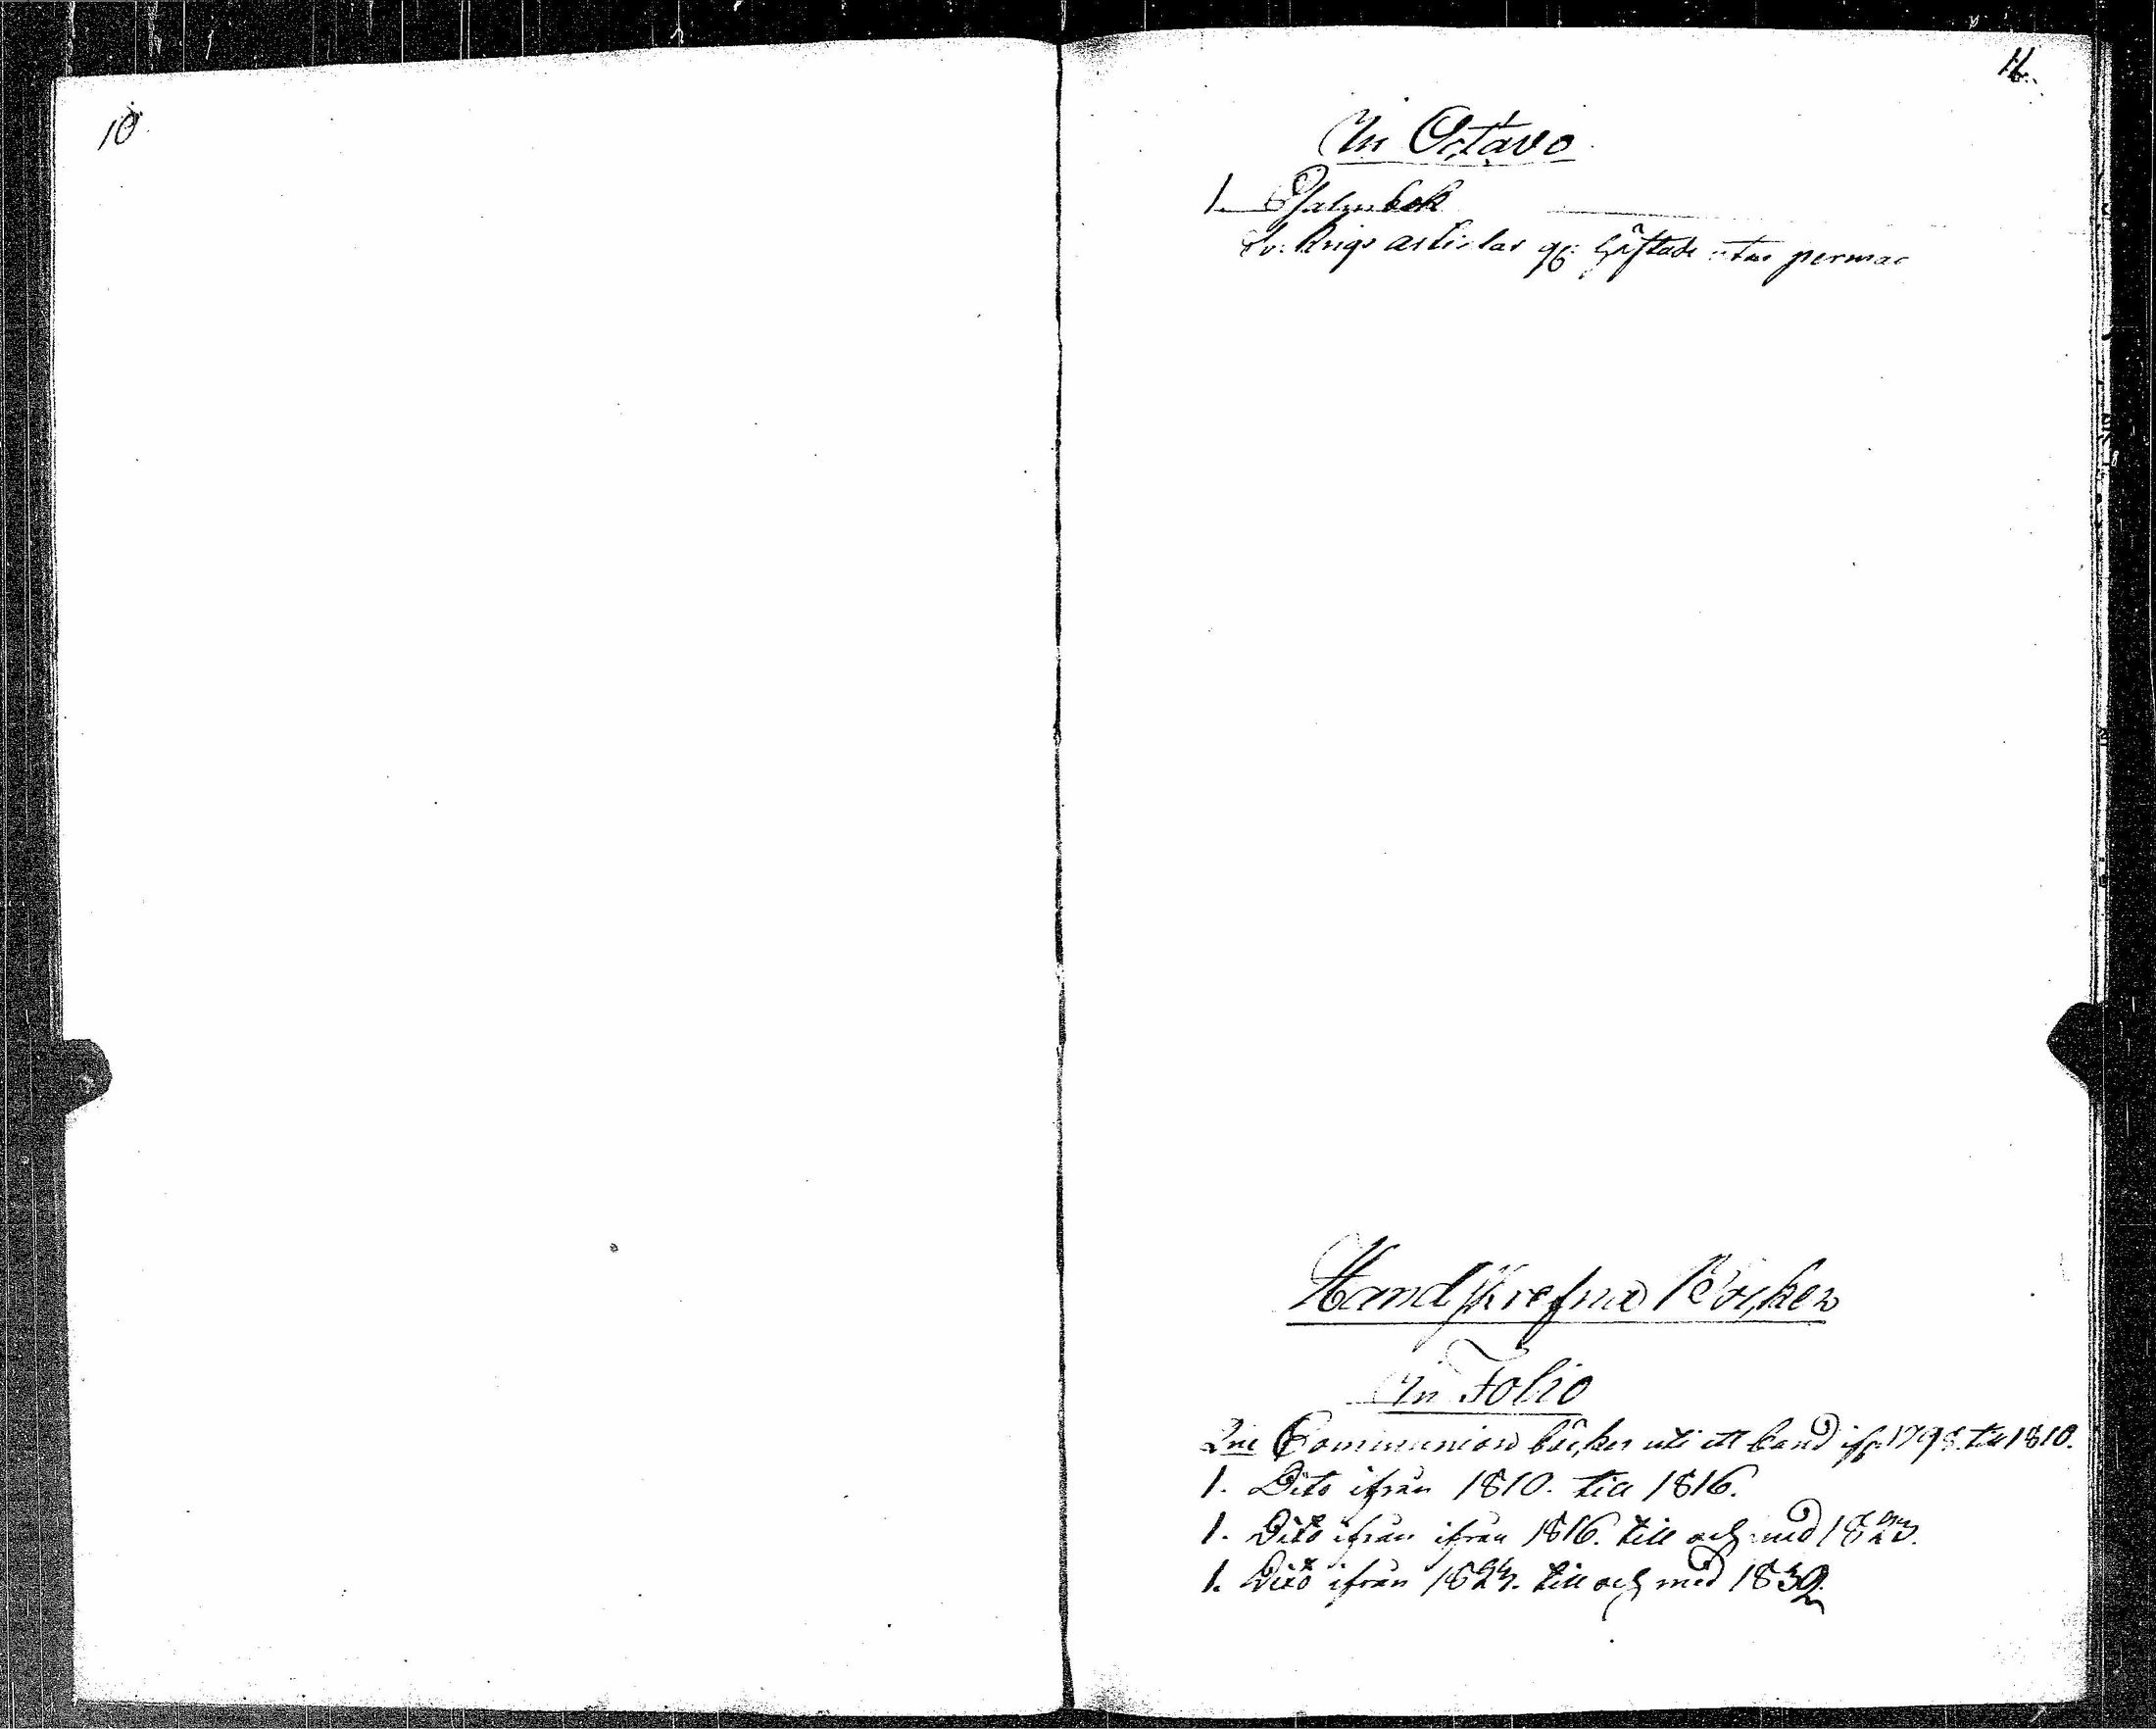 10
11.
In Octavo
1. Psalmbok
Sv. Krigs articlar häftade utan permar
Handskrefna Böcker
In Folio
2ne Communions böcker uti ett band ifr. 1798 till 1810.
1. Dito ifrån 1810. till 1816.
1. Dito ifrån ifrån 1816. till och med 1823.
1. Dito ifrån 1823. till och med 1832